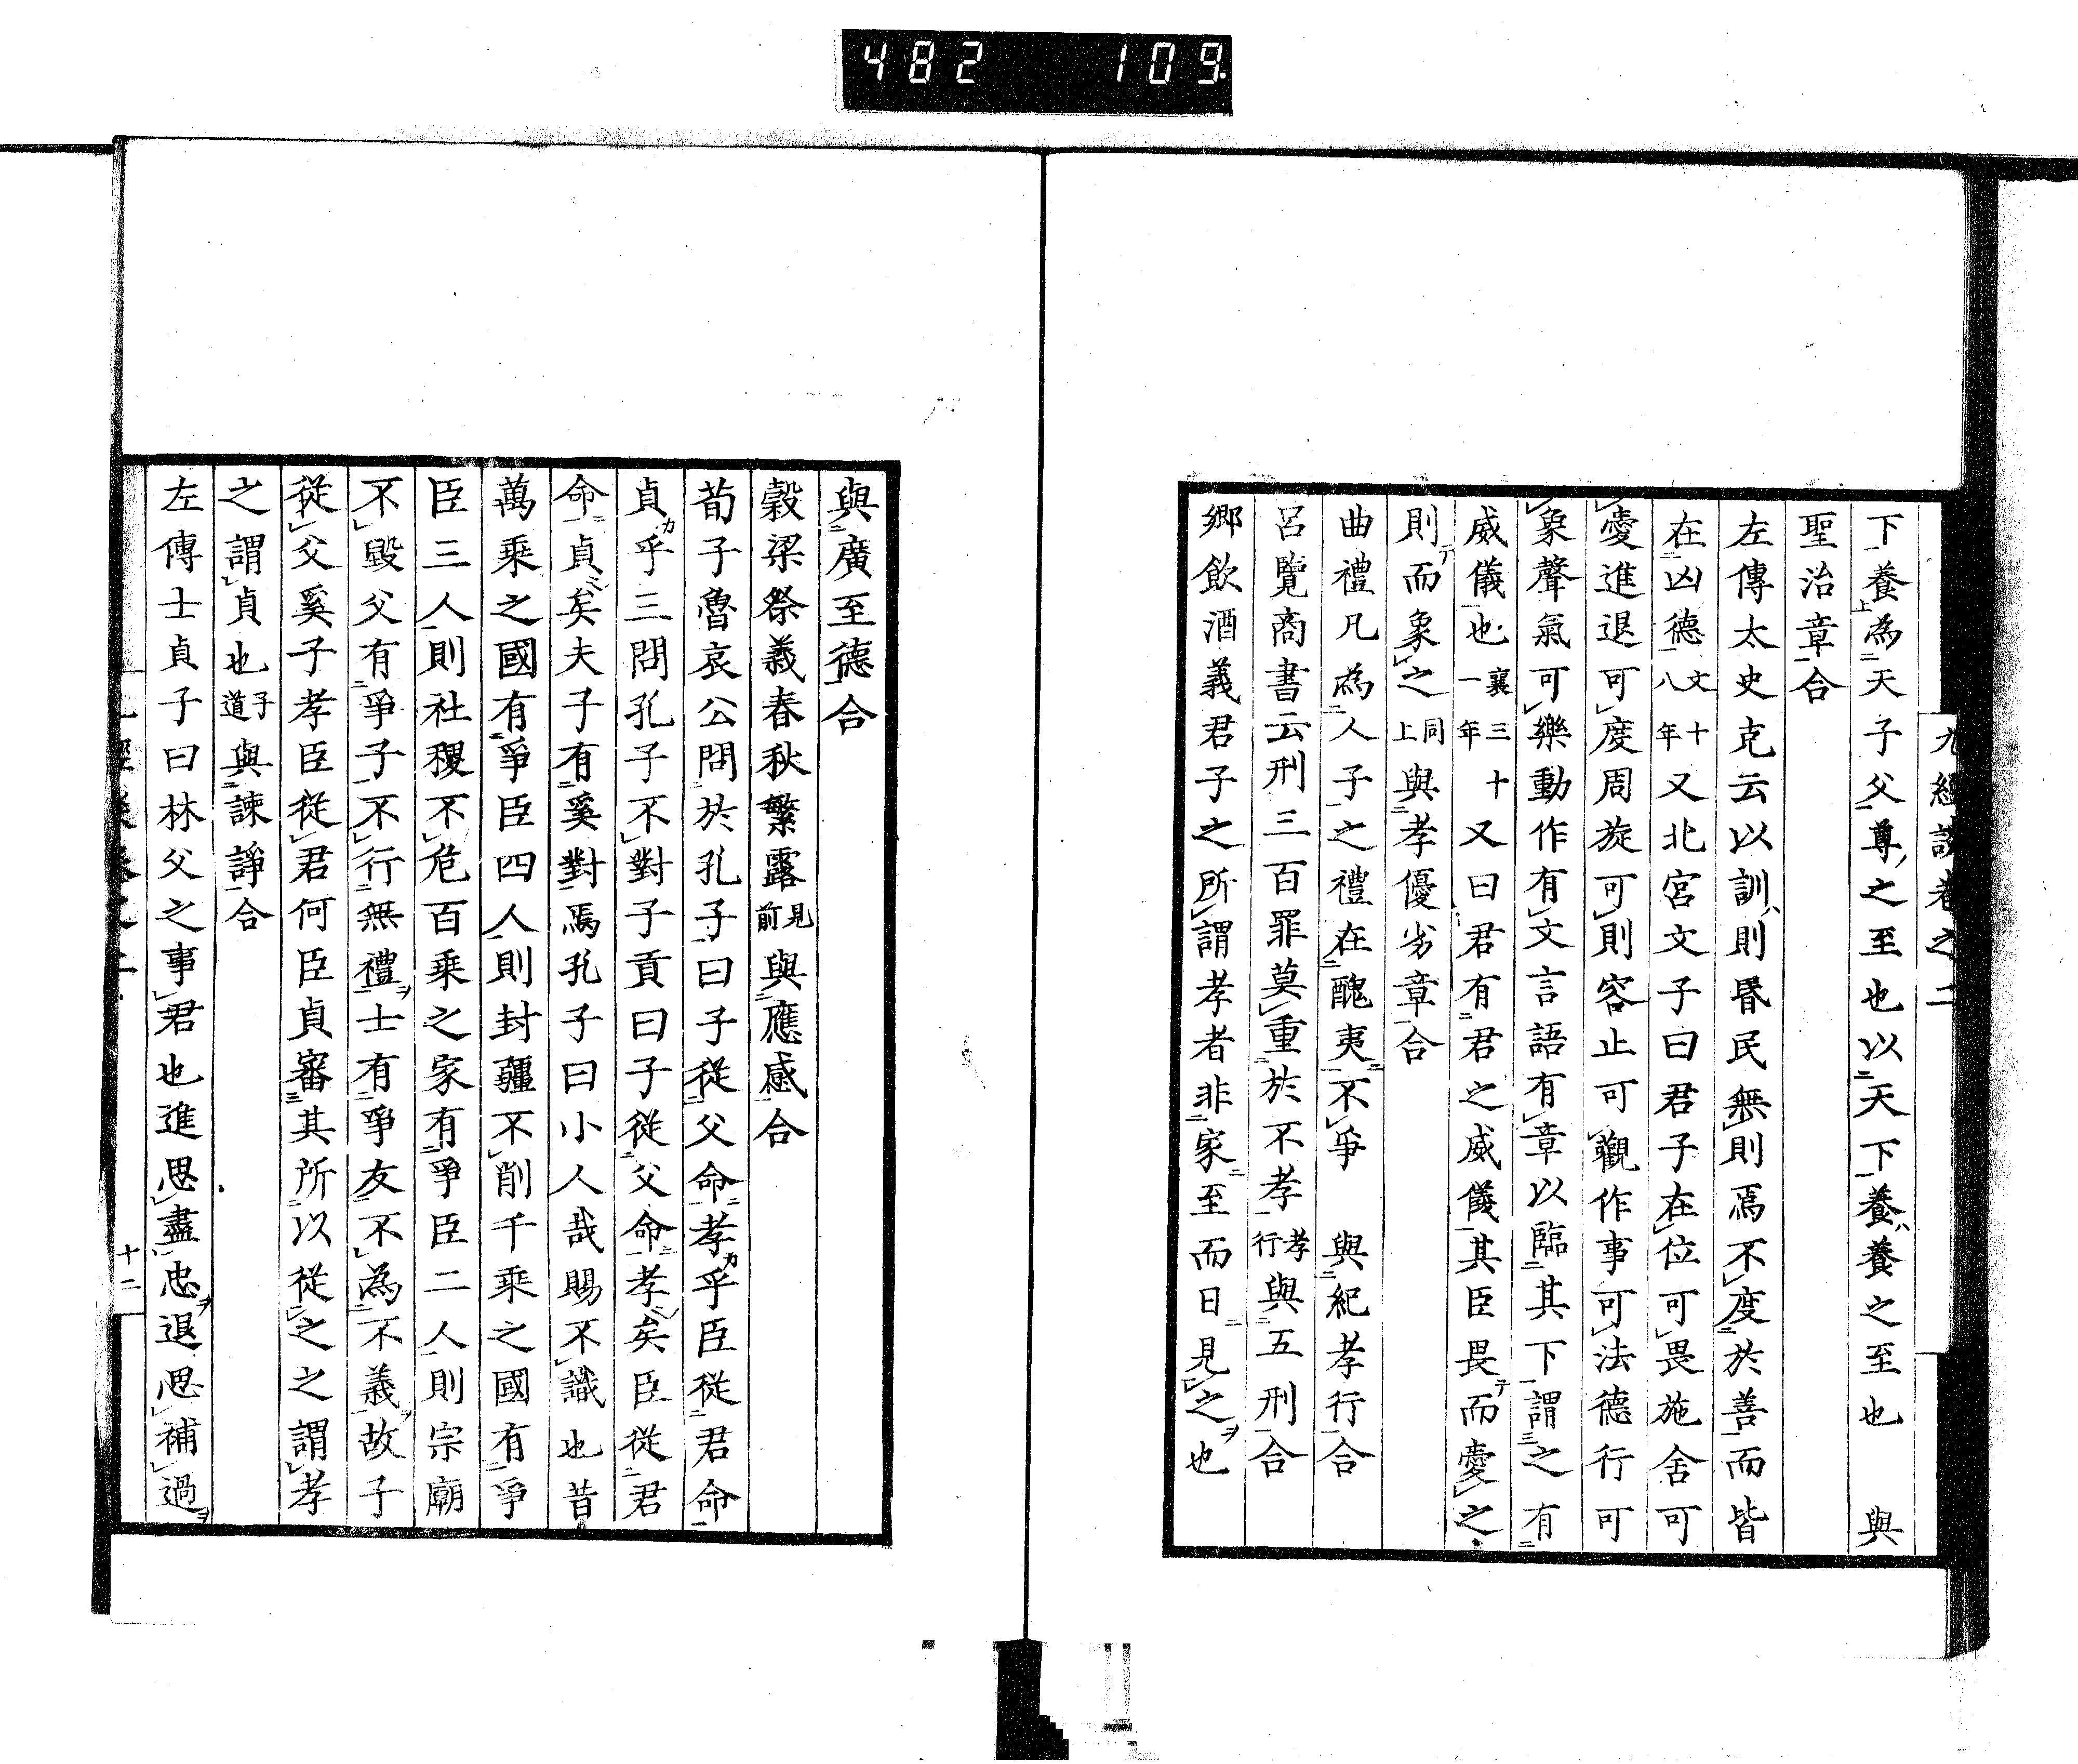 482 109
九經談卷之二
下養為天子父尊之至也以天下養養之至也 與
聖治章合
左傳太史克云以訓則昏民無則焉不度於善而皆
在凶德文十八年又北宮文子曰君子在位可畏施舍可
愛進退可度周旋可則容止可觀作事可法德行可
象聲氣可樂動作有文言語有章以臨其下謂之有
威儀也襄三十一年又曰君有君之威儀其臣畏而愛之
則而象之同上與孝優劣章合
曲禮凡為人子之禮在醜夷不爭 與紀孝行合
呂覽商書云刑三百罪莫重於不孝孝行與五刑合
鄉飲酒義君子之所謂孝者非家至而日見之也
與廣至德合
穀梁祭義春秋繁露見前與應感合
荀子魯哀公問於孔子曰子從父命孝乎臣從君命
貞乎三問孔子不對子貢曰子從父命孝矣臣從君
命貞矣夫子有奚對焉孔子曰小人哉賜不識也昔
萬乘之國有爭臣四人則封疆不削千乘之國有爭
臣三人則社稷不危百乘之家有爭臣二人則宗廟
不毀父有爭子不行無禮士有爭友不為不義故子
從父奚子孝臣從君何臣貞審其所以從之之謂孝
之謂貞也子道與諫諍合
左傳士貞子曰林父之事君也進思盡忠退思補過
十二